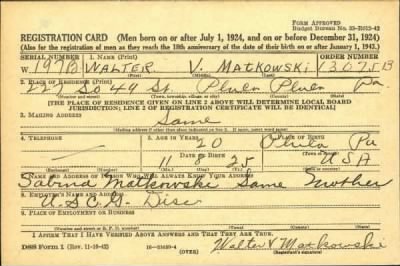 FORM APPROVED
Budget Bureau No. 33-R012-42
REGISTRATION CARD (Men born on or after July 1, 1924, and on or before December 31, 1924)
(Also for the registration of men as they reach the 18th anniversary of the date of their birth on or after January 1, 1943.)
SERIAL NUMBER 1. NAME (Print) ORDER NUMBER
W 197B WALTER V. MATKOWSKI 13075B
2. PLACE OF RESIDENCE (Print)
227 So 49 St. Phila Phila Pa.
(Number and street) (Town, township, village, or city) (County) (State)
[THE PLACE OF RESIDENCE GIVEN ON LINE 2 ABOVE WILL DETERMINE LOCAL BOARD
JURISDICTION; LINE 2 OF REGISTRATION CERTIFICATE WILL BE IDENTICAL]
3. MAILING ADDRESS
Same
4. TELEPHONE 5. AGE IN YEARS 6. PLACE OF BIRTH
20 Phila Pa
DATE OF BIRTH (Town or county)
11 8 25 USA
7. NAME AND ADDRESS OF PERSON WHO WILL ALWAYS KNOW YOUR ADDRESS
Sabina Matkowski Same Mother
8. EMPLOYER'S NAME AND ADDRESS
U.S.C.G. Disc
9. PLACE OF EMPLOYMENT OR BUSINESS
(Number and street or R. F. D. number) (Town) (County) (State)
I AFFIRM THAT I HAVE VERIFIED ABOVE ANSWERS AND THAT THEY ARE TRUE.
DSS Form 1 (Rev. 11-16-42) (OVER) Walter V Matkowski
(Registrant's signature)